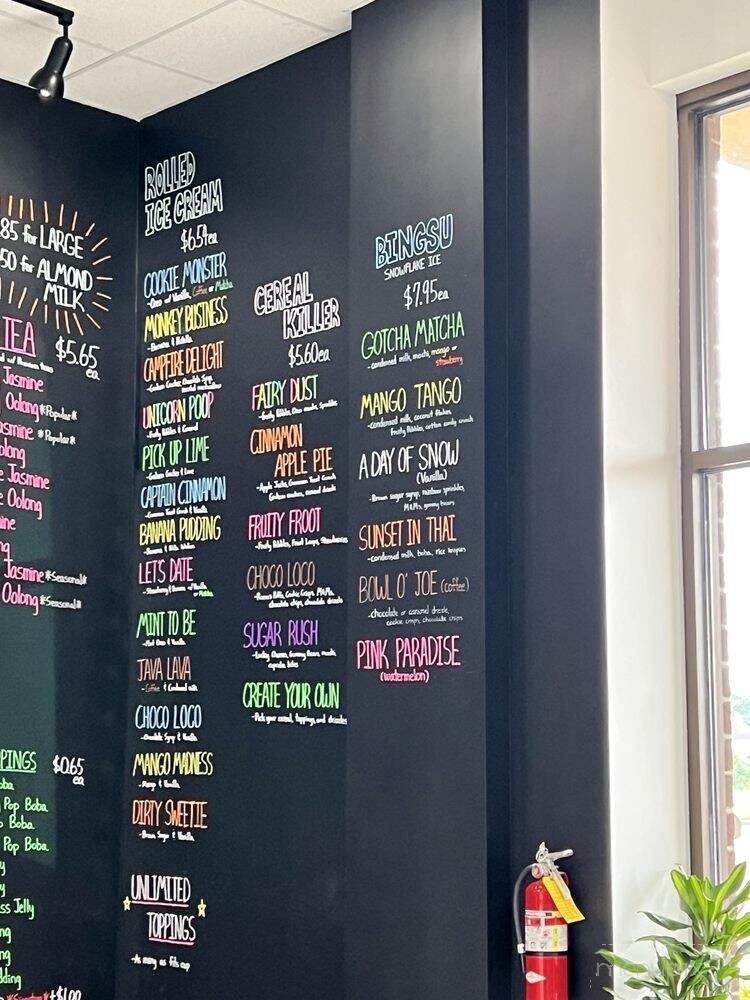 85 for LARGE
50 for ALMOND
MILK
TEA
$5.65
ea
Jasmine
Oolong *Popular*
asmine *Popular*
olong
e Jasmine
e Oolong
ine
ng
Jasmine *Seasonal*
Oolong *Seasonal*
PPINGS $0.65
ea
oba
Pop Boba
Boba
Pop Boba
y
y
ss Jelly
ng
ng
dding
+$1.00
ROLLED
ICE CREAM
$6.54ea
COOKIE MONSTER
-Oreo w/ Vanilla, Coffee or Matcha
MONKEY BUSINESS
-Banana & Nutella
CAMPFIRE DELIGHT
-Graham Cracker, Chocolate Syrup
UNICORN POOP
-Fruity Pebbles & Caramel
PICK UP LIME
-Graham Cracker & Lime
CAPTAIN CINNAMON
-Cinnamon Toast Crunch & Vanilla
BANANA PUDDING
-Banana & Nilla Wafers
LETS DATE
-Strawberry & Banana w/ Vanilla
or Matcha
MINT TO BE
-Mint Oreo & Vanilla
JAVA LAVA
-Coffee & Condensed milk
CHOCO LOCO
-Chocolate Syrup & Vanilla
MANGO MADNESS
-Mango & Vanilla
DIRTY SWEETIE
-Brown Sugar & Vanilla
UNLIMITED
TOPPINGS
-As many as fits cup
CEREAL
KILLER
$5.60ea
FAIRY DUST
-Fruity Pebbles, Oreo crumbs, Sprinkles
CINNAMON
APPLE PIE
-Apple Jacks, Cinnamon Toast Crunch
Graham crackers, caramel drizzle
FRUITY FROOT
-Fruity Pebbles, Froot Loops, Strawberries
CHOCO LOCO
-Cocoa Puffs, Cookie Crisps, M&Ms,
chocolate chips, chocolate drizzle
SUGAR RUSH
-Lucky Charms, Gummy Bears, mochi,
cupcake bites
CREATE YOUR OWN
-Pick your cereal, toppings, and drizzles
BINGSU
SNOWFLAKE ICE
$7.95ea
GOTCHA MATCHA
-condensed milk, mochi, mango or
strawberry
MANGO TANGO
-condensed milk, coconut flakes,
fruity Pebbles, cotton candy crunch
A DAY OF SNOW
(Vanilla)
-Brown sugar syrup, rainbow sprinkles,
M&Ms, gummy bears
SUNSET IN THAI
-condensed milk, boba, rice krispies
BOWL O' JOE (coffee)
-chocolate or caramel drizzle,
cookie crisps, chocolate chips
PINK PARADISE
(watermelon)